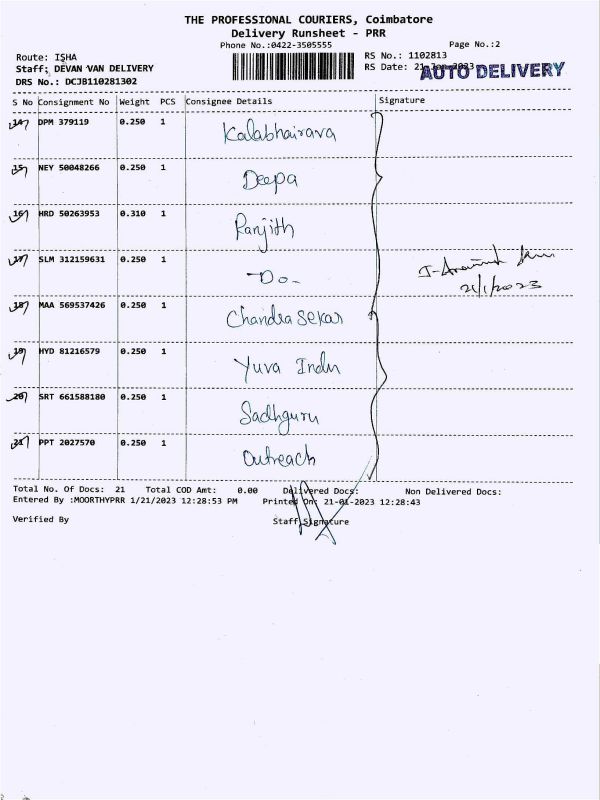 THE PROFESSIONAL COURIERS, Coimbatore
Delivery Runsheet - PRR
Phone No.:0422-3505555
Page No.:2
Route: ISHA
Staff: DEVAN VAN DELIVERY
DRS No.: DCJB110281302
RS No.: 1102813
RS Date: 21-Jan-2023
AUTO DELIVERY
S No Consignment No Weight PCS Consignee Details Signature
14 DPM 379119 0.250 1 Kalabhairava
15 NEY 50048266 0.250 1 Deepa
16 HRD 50263953 0.310 1 Ranjith
17 SLM 312159631 0.250 1 -Do-
21/1/2023
18 MAA 569537426 0.250 1 Chandrasekar
19 HYD 81216579 0.250 1 Yuva Indu
20 SRT 661588180 0.250 1 Sadhguru
21 PPT 2027570 0.250 1 Outreach
Total No. Of Docs: 21 Total COD Amt: 0.00 Delivered Docs: Non Delivered Docs:
Entered By :MOORTHYPRR 1/21/2023 12:28:53 PM Printed On: 21-01-2023 12:28:43
Verified By Staff Signature